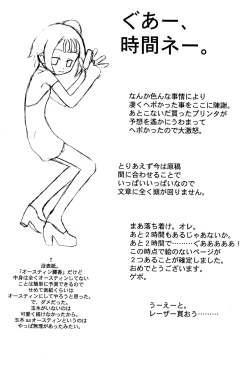 ぐあー、
時間ネー。
なんか色んな事情により
凄くヘボかった事をここに陳謝。
あとこないだ買ったプリンタが
予想を遥かにうわまって
ヘボかったので大激怒。
とりあえず今は原稿
間に合わせることで
いっぱいいっぱいなので
文章に全く頭が回りません。
まあ落ち着け、オレ。
あと2時間もあるじゃあないか。
あと2時間で………ぐあああああ！
この時点で絵のないページが
2つあることが確定しました。
おめでとうございます。
ゲボ。
うーえーと。
レーザー買おう………
↑
没表紙。
「オースティン麗奈」だけど
中身は全くオースティンしてない
ことは簡単に予測できるので
せめて表紙くらいは
オースティンにしてやろうと思った。
で、ダメだった。
玉木がいないのは
可愛く描けなかったから。
玉木asオースティンというのは
やっぱ無理があったみたい。